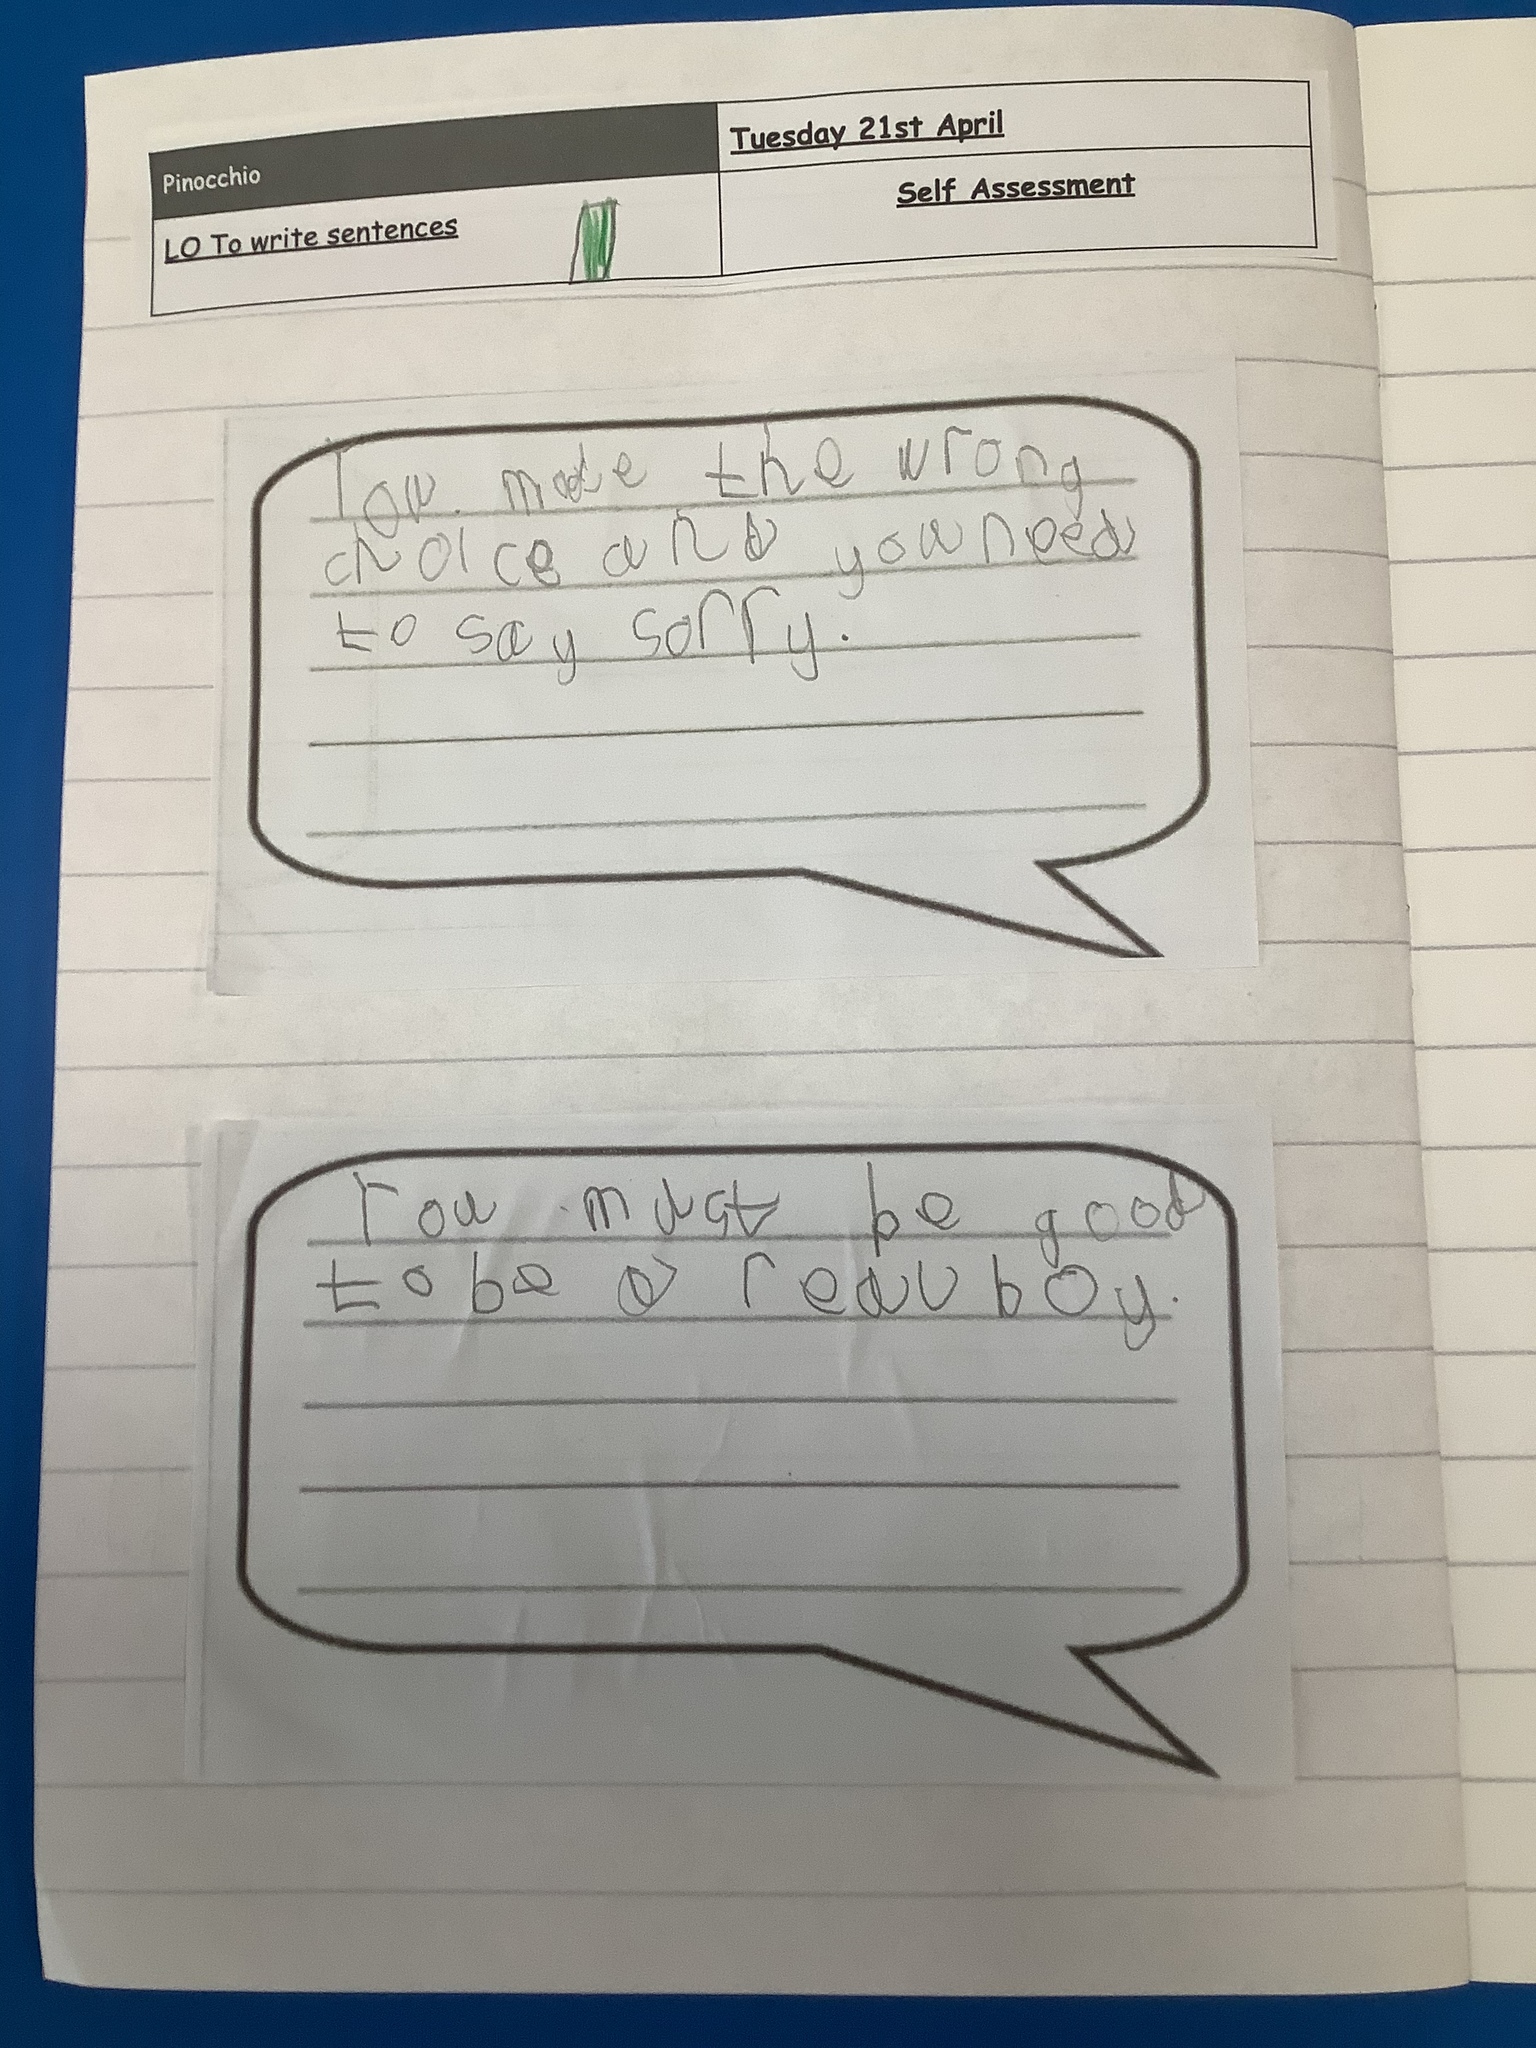 Pinocchio
Tuesday 21st April
LO To write sentences
Self Assessment
You made the wrong
choice and you need
to say sorry.
You must be good
to be a real boy.